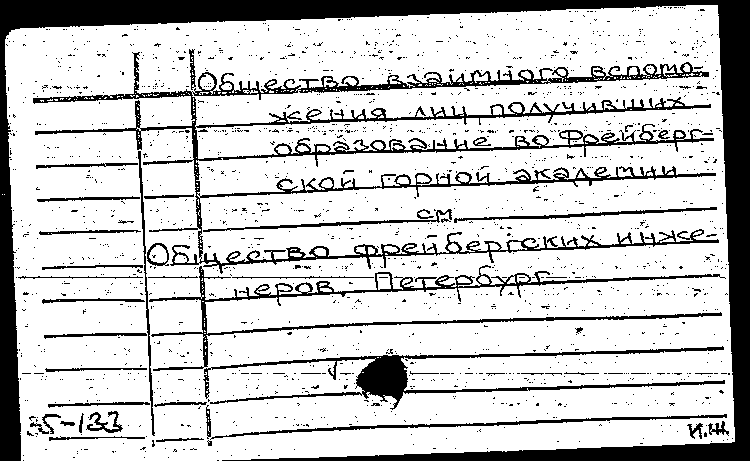 Общество взаимного вспомо-
жения лиц, получивших
образование во Фрейберг-
ской горной академии
см.
Общество фрейбергских инже-
неров. Петербург
35-133
И.Ш.